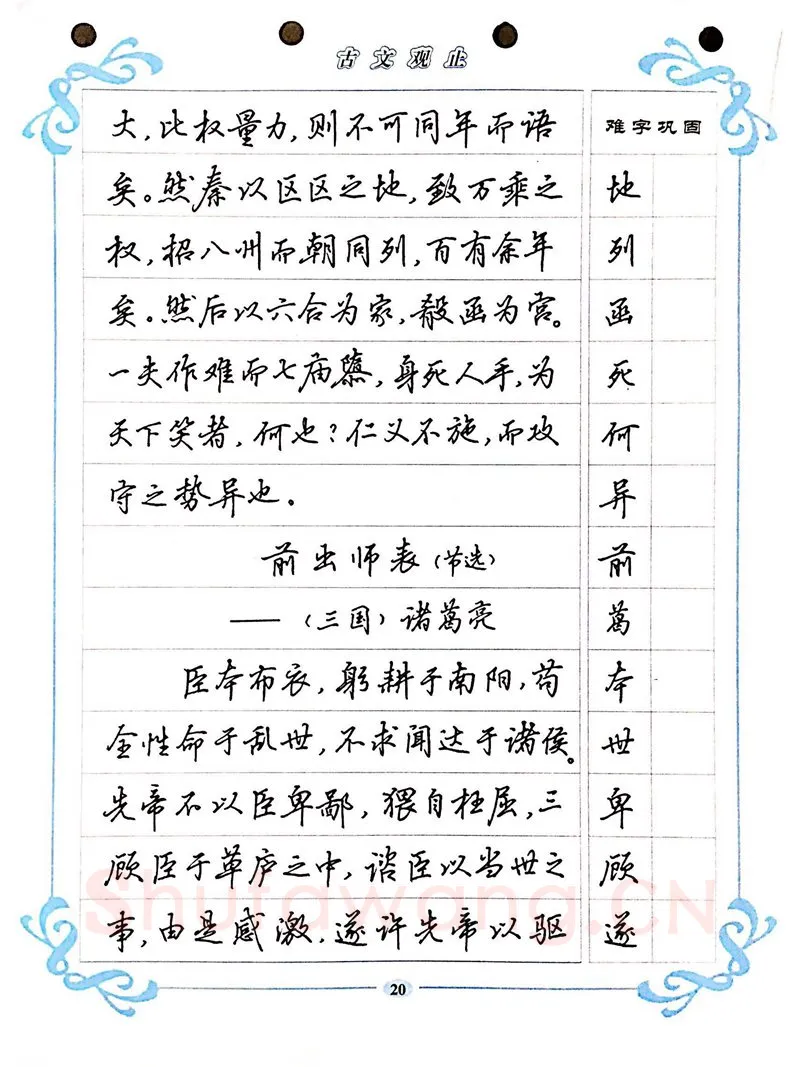 古文观止
大，此权量力，则不可同年而语
矣。然秦以区区之地，致万乘之
权，招八州而朝同列，百有余年
矣。然后以六合为家，殽函为宫。
一夫作难而七庙隳，身死人手，为
天下笑者，何也？仁义不施，而攻
守之势异也。
前出师表（节选）
——（三国）诸葛亮
臣本布衣，躬耕于南阳，苟
全性命于乱世，不求闻达于诸侯。
先帝不以臣卑鄙，猥自枉屈，三
顾臣于草庐之中，谘臣以当世之
事，由是感激，遂许先帝以驱
难字巩固
地
列
函
死
何
异
前
葛
本
世
卑
顾
遂
Shufawang.CN
20